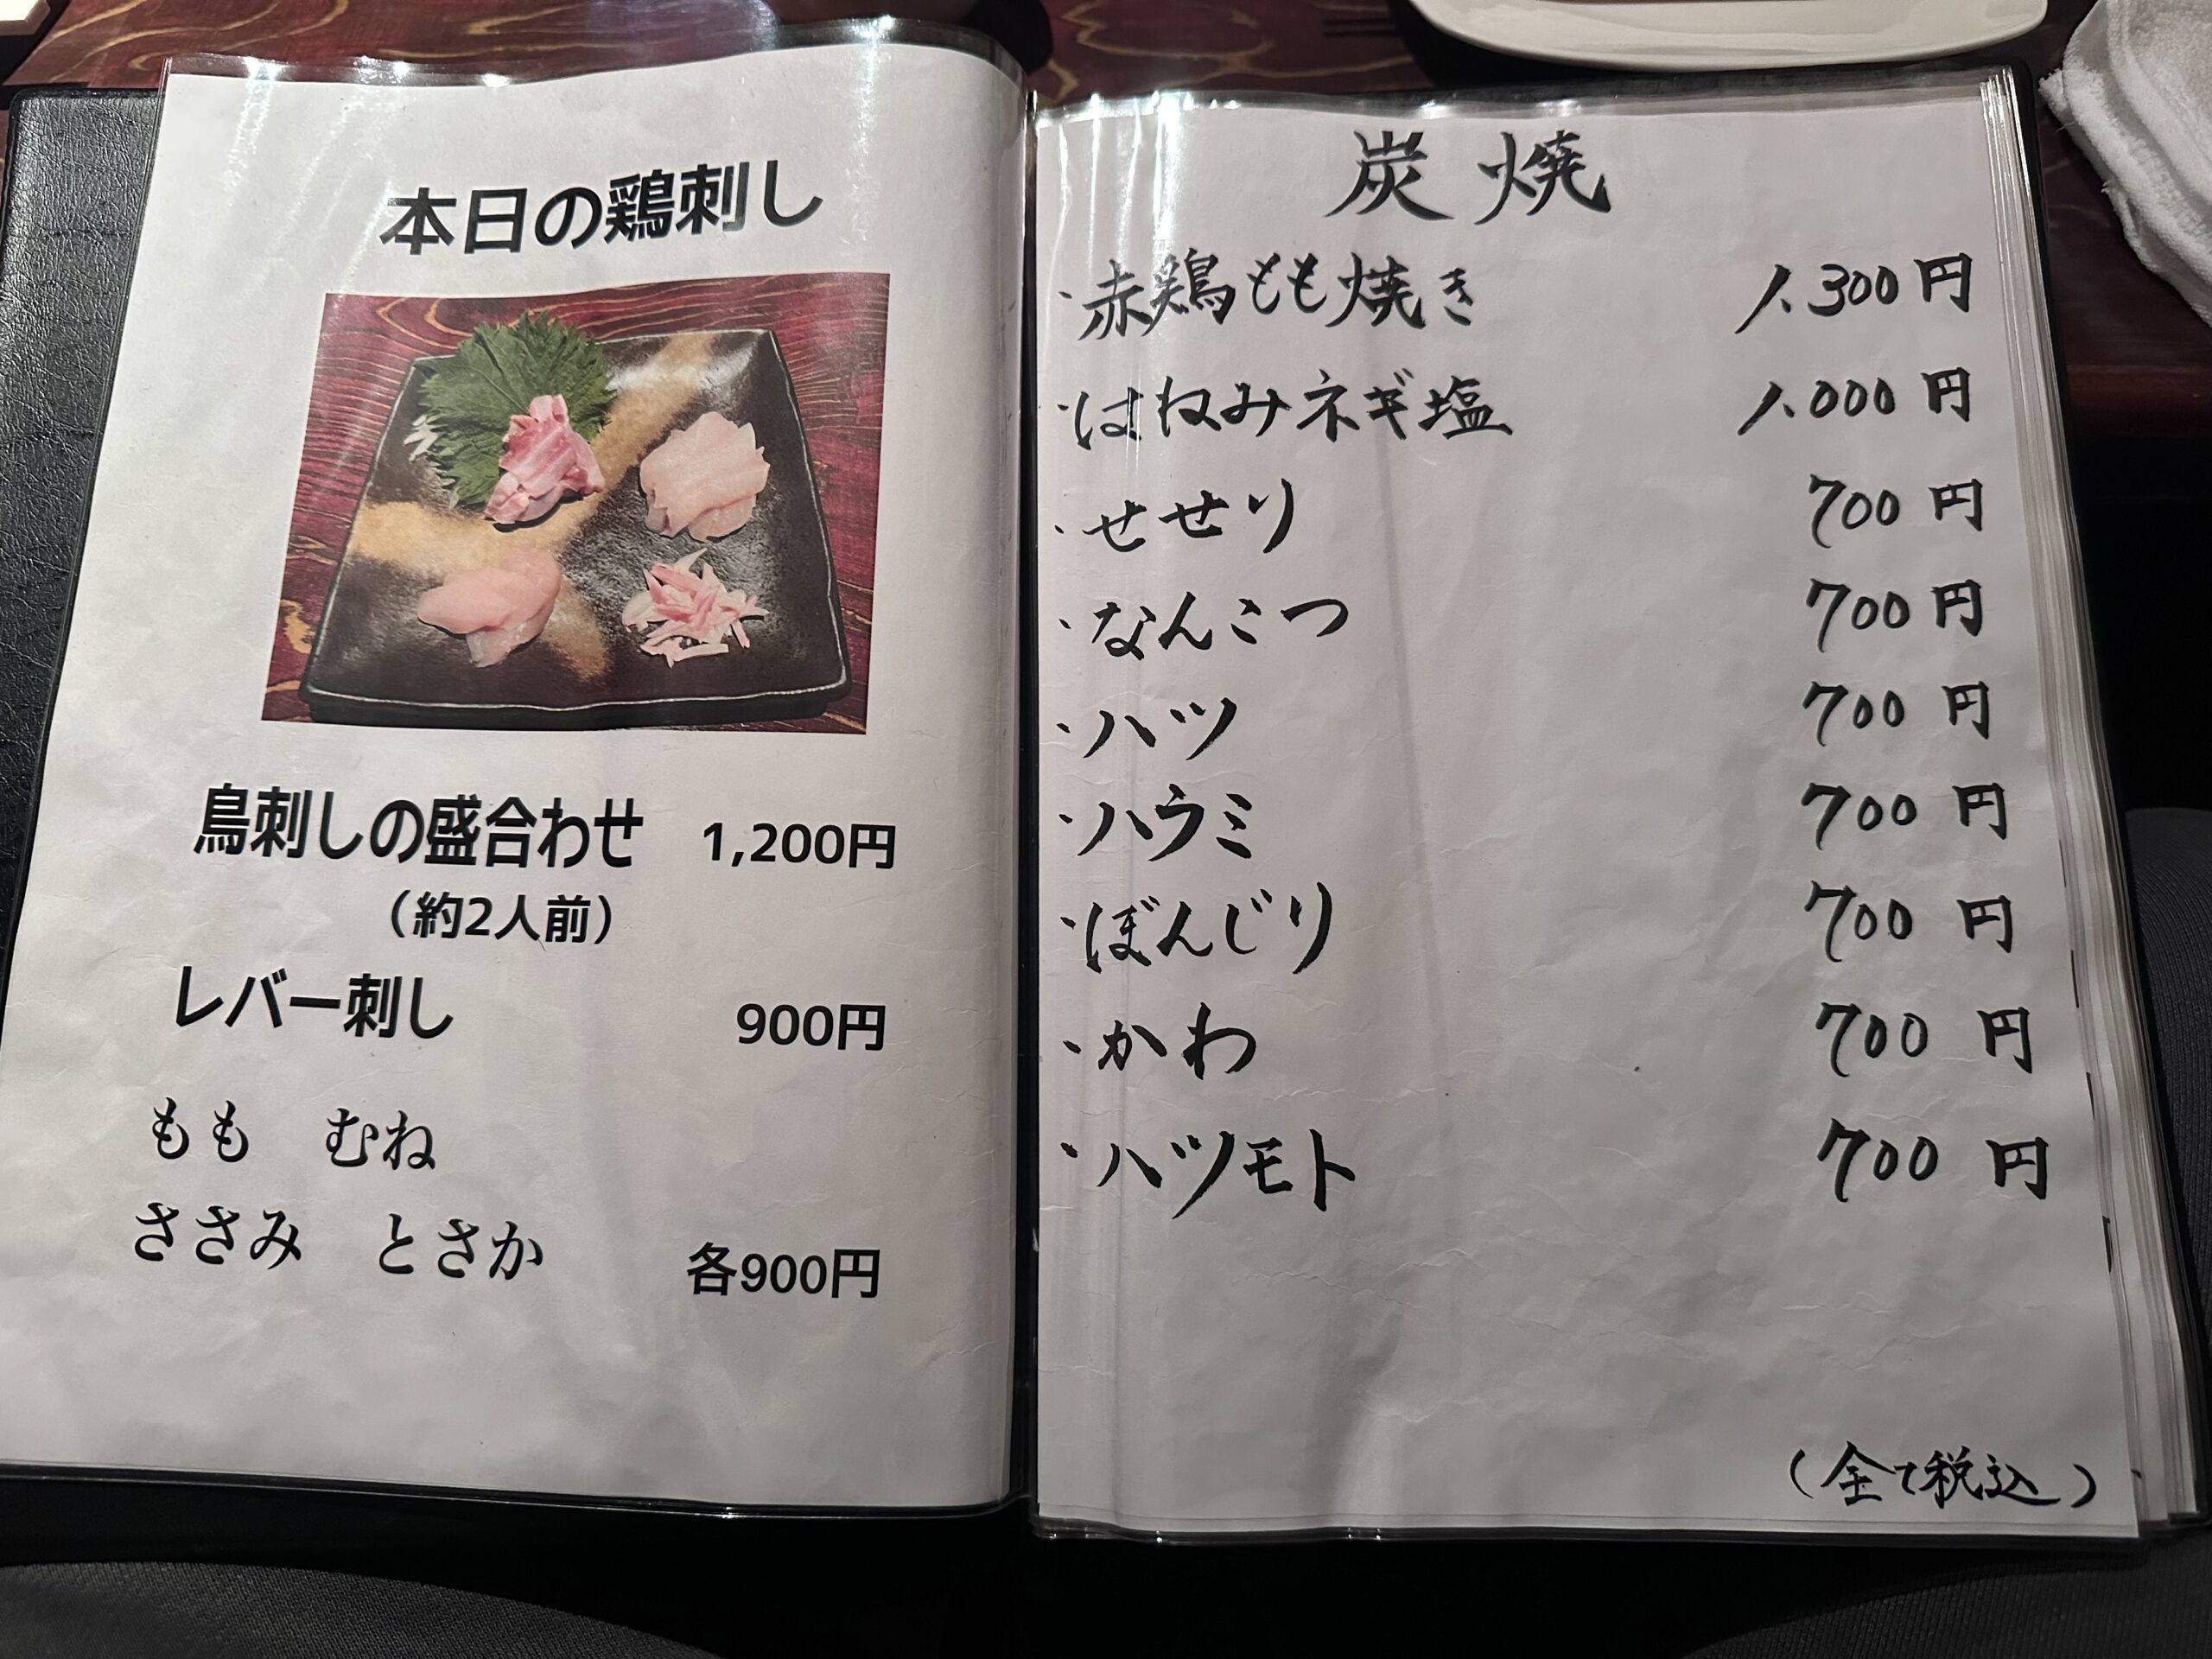 本日の鶏刺し
鳥刺しの盛合わせ 1,200円
（約2人前）
レバー刺し 900円
もも むね
ささみ とさか 各900円
炭焼
・赤鶏もも焼き 1.300円
・はねみネギ塩 1.000円
・せせり 700円
・なんこつ 700円
・ハツ 700円
・ハラミ 700円
・ぼんじり 700円
・かわ 700円
・ハツモト 700円
（全て税込）